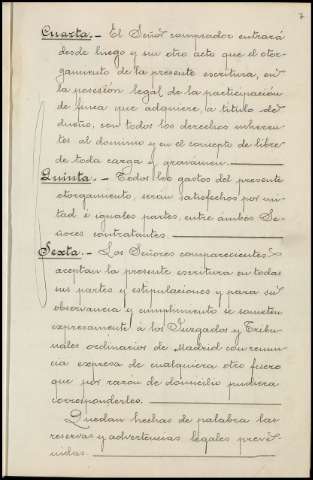 7
Cuarta.- El Señor comprador entrará
desde luego y sin otro acto que el otor-
gamiento de la presente escritura, en
la posesión legal de la participación
de finca que adquiere, a titulo de
dueño, con todos los derechos inheren-
tes al dominio y en el concepto de libre
de toda carga y gravámen.
Quinta.- Todos los gastos del presente
otorgamiento, serán satisfechos por mi-
tad é iguales partes, entre ámbos Se-
ñores contratantes.
Sexta.- Los Señores comparecientes
aceptan la presente escritura en todas
sus partes y estipulaciones y para su
observancia y cumplimiento se someten
expresamente á los Juzgados y Tribu-
nales ordinarios de Madrid con renun-
cia expresa de cualquiera otro fuero
que por razón de domicilio pudiera
corresponderles.
Quedan hechas de palabra las
reservas y advertencias legales preve-
nidas.